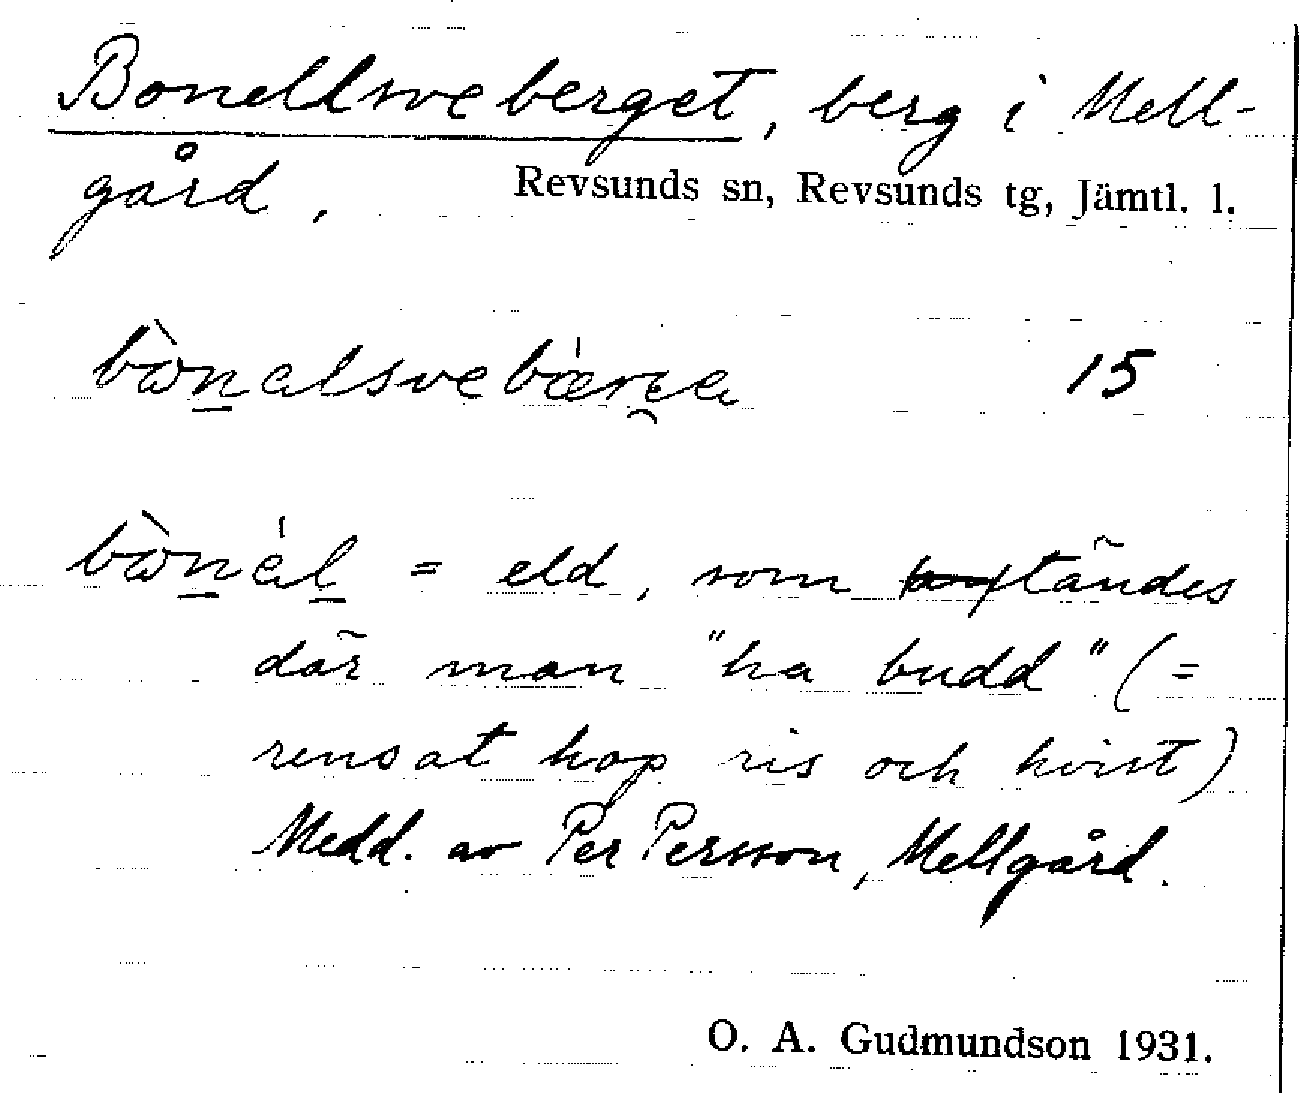 Bonellsveberget, berg i Mell-
gård, Revsunds sn, Revsunds tg, Jämtl. l.
15
= eld, som tändes
där man "ha budd" (=
rensat hop ris och kvist)
Medd. av Per Persson, Mellgård.
O. A. Gudmundson 1931.